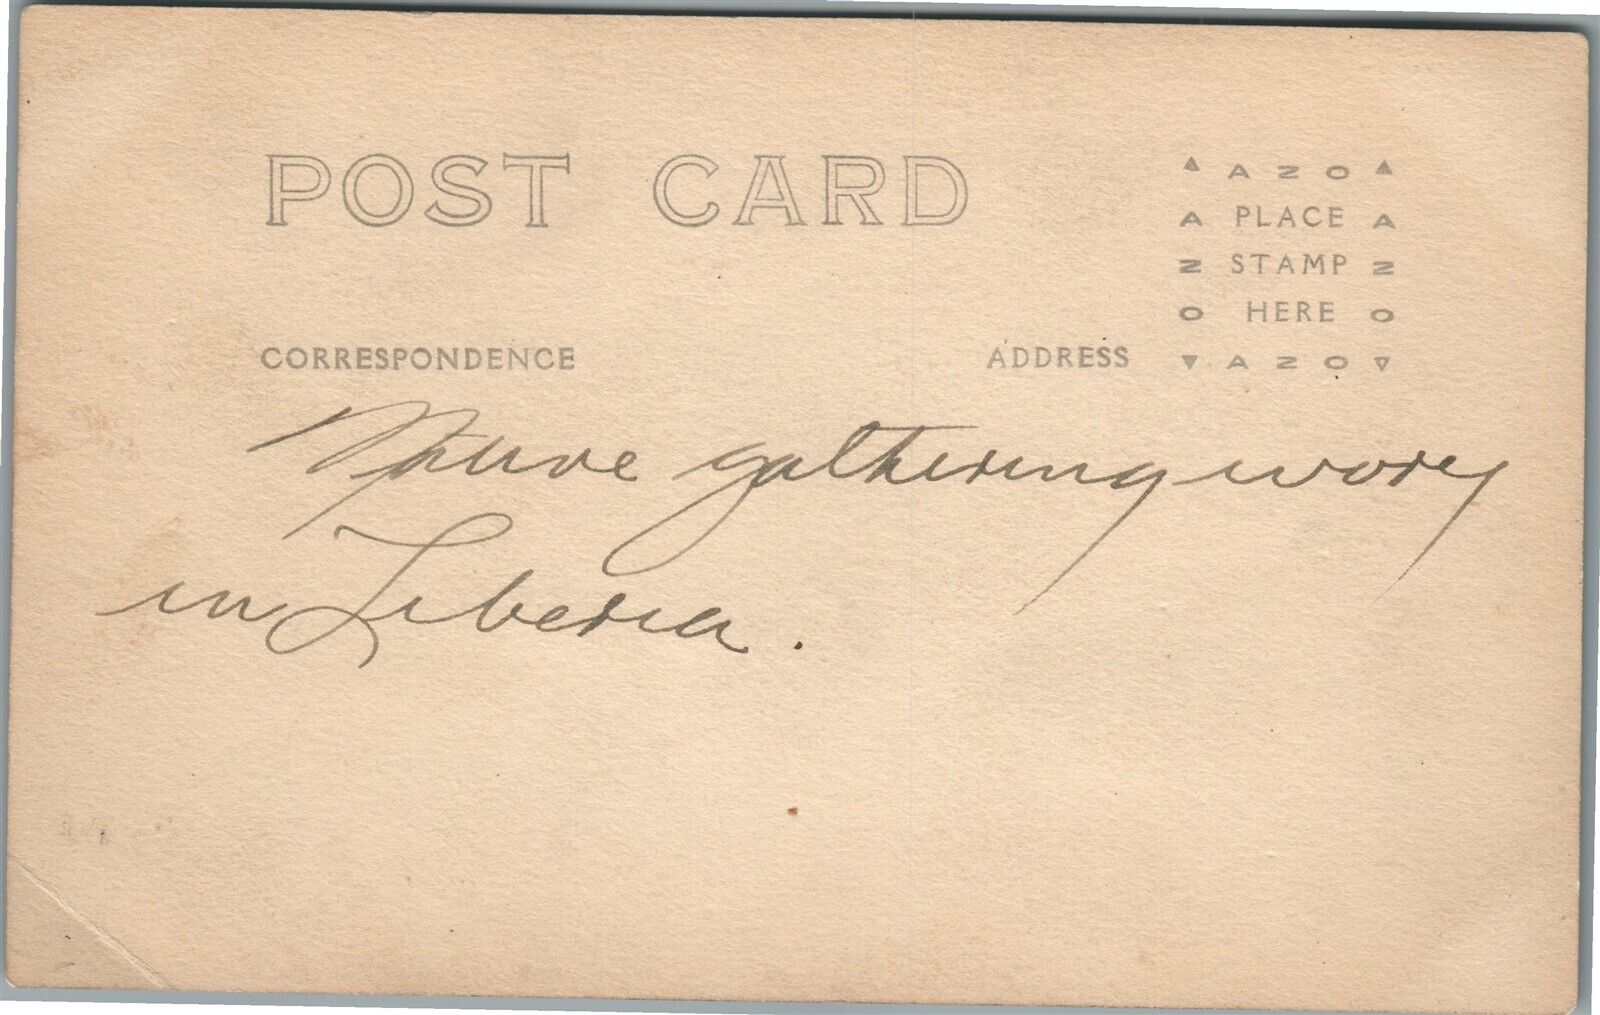 POST CARD
▲ AZO ▲
A PLACE A
Z STAMP Z
O HERE O
▼ AZO ▽
CORRESPONDENCE
ADDRESS
Native gathering ivory
in Liberia.